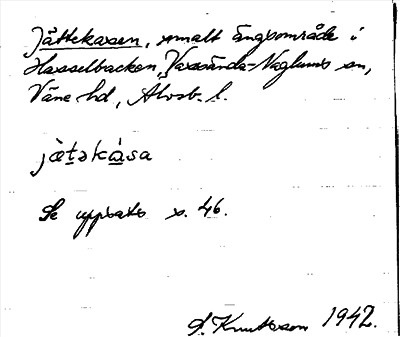 Jättekasen, smalt ängsområde i
Hasselbacken, Vassända-Naglums sn,
Väne hd, Älvsb. l.
jæ̀t̠əkɑ̀sa
Se uppsats s. 46.
S. Knutsson 1942.